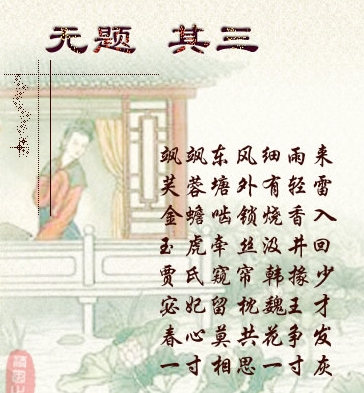 无题 其三
飒飒东风细雨来
芙蓉塘外有轻雷
金蟾啮锁烧香入
玉虎牵丝汲井回
贾氏窥帘韩掾少
宓妃留枕魏王才
春心莫共花争发
一寸相思一寸灰